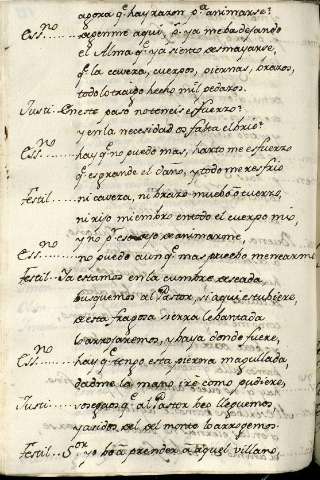 agora q̃ hay razon pª animarse?
Essno dexenme aqui, q̃ ya me ba dexando
el Alma q̃ ya siento desmayarse,
q̃ la cavera, cuerpos, piernas, braços,
todo lo traygo hecho mil pedaços.
Justi. En este paso no teneis esfuerzo?
y en la necesidad os falta el brio?
Essno hay q̃ no puedo mas, harto me esfuerço
q̃ es grande el daño, y todo me resfrio
Festil ni cavera, ni braço muebo o cuerpo,
ni rijo miembro en todo el cuerpo mio,
y no de animarme,
Essno no puedo aun q̃ mas pruebo menearme
Festil Ya estamos en la cumbre deseada
busquemos al Pastor, si aqui estubiere,
desta fragosa sierra lebantada
lo arrojaremos, u haya donde fuere,
Essno hay q̃ tengo esta pierna magullada,
dadme la mano ire como pudiere,
Justi. sosegaos q̃ al Pastor heo lleguemos
y asido del monte lo arrogemos.
Festil Sor yo bo a prender a aquel villano,